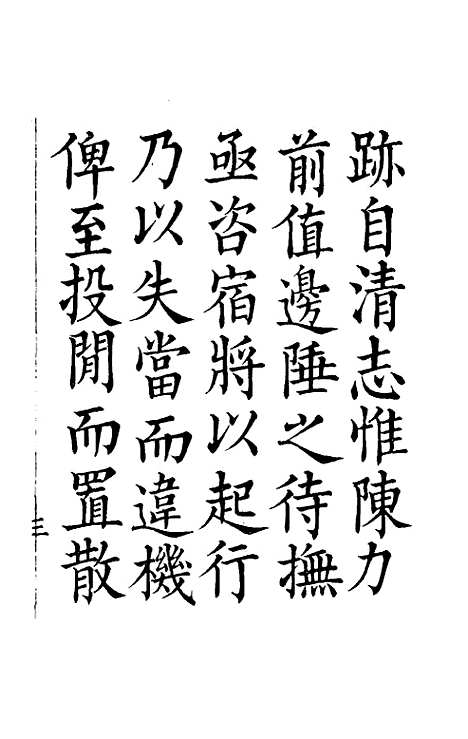 跡自清志惟陳力
前值邊陲之待撫
亟咨宿將以起行
乃以失當而違機
俾至投閒而置散
三